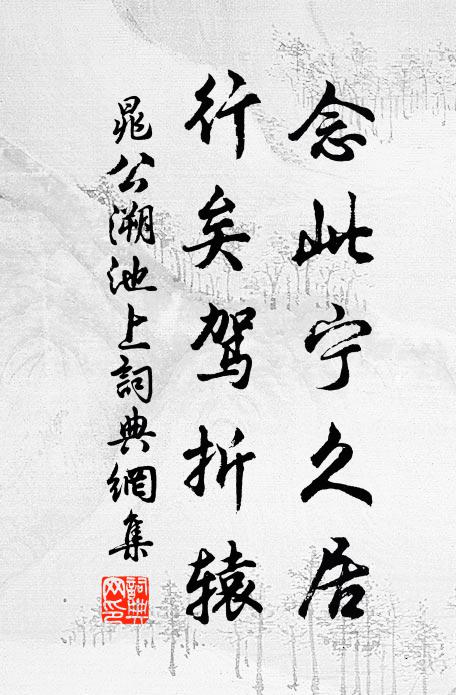 念此宁久居
行矣驾折辕
晁公溯池上詞典網集
詞典